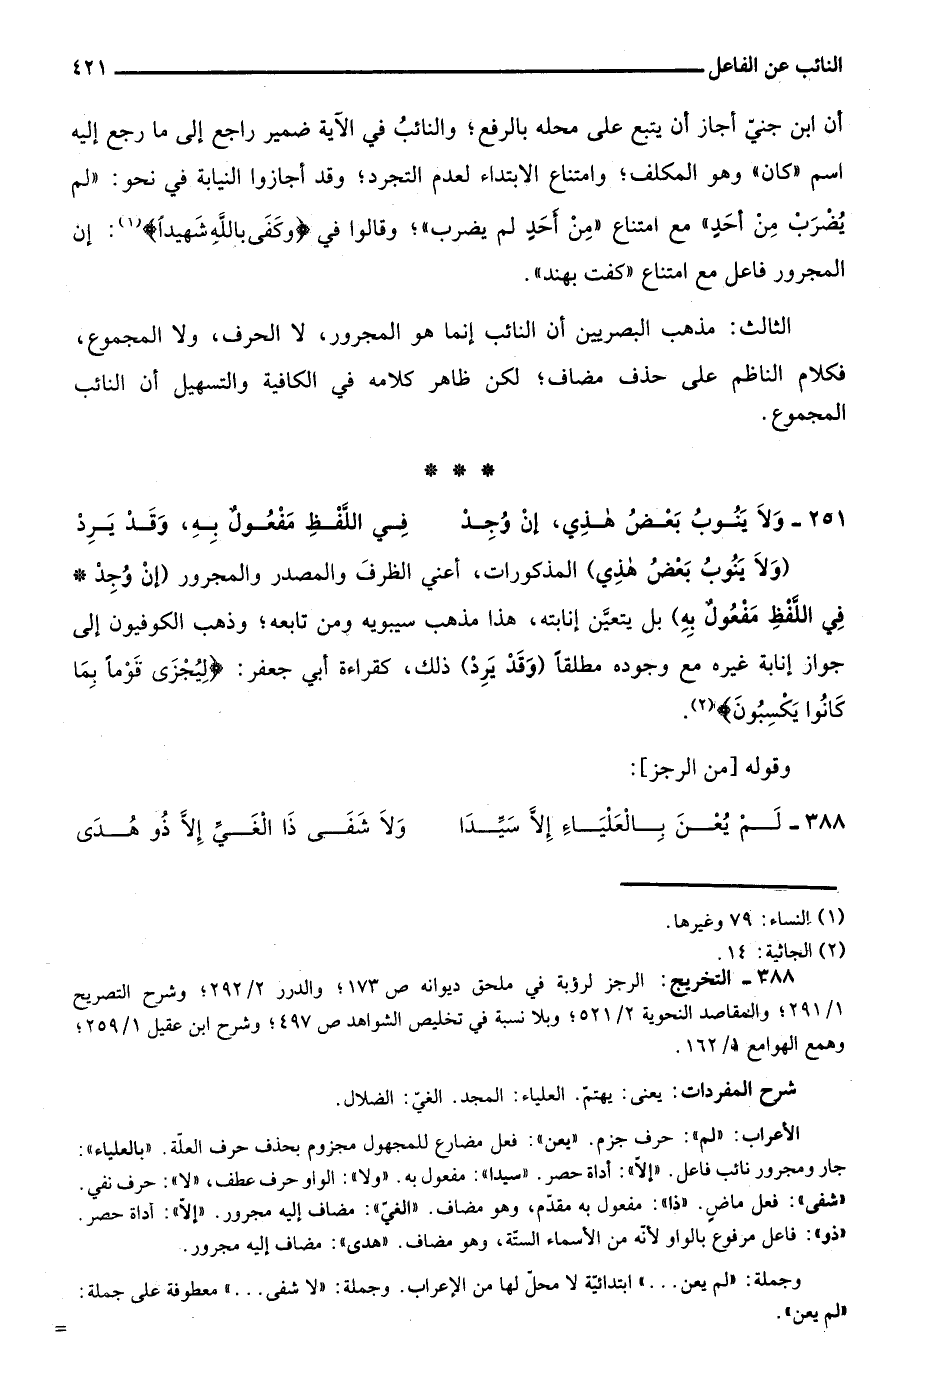 النائب عن الفاعل ٤٢١
أن ابن جنيّ أجاز أن يتبع على محله بالرفع؛ والنائبُ في الآية ضمير راجع إلى ما رجع إليه
اسم «كان» وهو المكلف؛ وامتناع الابتداء لعدم التجرد؛ وقد أجازوا النيابة في نحو: «لم
يُضْرَبْ مِنْ أَحَدٍ» مع امتناع «مِنْ أَحَدٍ لم يضرب»؛ وقالوا في ﴿وكَفَى باللَّهِ شَهيداً﴾(١): إن
المجرور فاعل مع امتناع «كفت بهند».
الثالث: مذهب البصريين أن النائب إنما هو المجرور، لا الحرف، ولا المجموع،
فكلام الناظم على حذف مضاف؛ لكن ظاهر كلامه في الكافية والتسهيل أن النائب
المجموع.
* * *
٢٥١ ـ وَلاَ يَنُوبُ بَعْضُ هٰذِي، إنْ وُجِدْ فِي اللَّفْظِ مَفْعُولٌ بِهِ، وَقَدْ يَرِدْ
(وَلاَ يَنُوبُ بَعْضُ هٰذِي) المذكورات، أعني الظرفَ والمصدر والمجرور (إنْ وُجِدْ *
فِي اللَّفْظِ مَفْعُولٌ بِهِ) بل يتعيَّن إنابته، هذا مذهب سيبويه ومن تابعه؛ وذهب الكوفيون إلى
جواز إنابة غيره مع وجوده مطلقاً (وَقَدْ يَرِدْ) ذلك، كقراءة أبي جعفر: ﴿لِيُجْزَى قَوْماً بِمَا
كَانُوا يَكْسِبُونَ﴾(٢).
وقوله [من الرجز]:
٣٨٨ ـ لَمْ يُعْنَ بِالْعَلْيَاءِ إلاَّ سَيِّدَا وَلاَ شَفَى ذَا الْغَيِّ إلاَّ ذُو هُدَى
(١) النساء: ٧٩ وغيرها.
(٢) الجاثية: ١٤.
٣٨٨ ـ التخريج: الرجز لرؤبة في ملحق ديوانه ص ١٧٣؛ والدرر ٢/ ٢٩٢؛ وشرح التصريح
١/ ٢٩١؛ والمقاصد النحوية ٢/ ٥٢١؛ وبلا نسبة في تخليص الشواهد ص ٤٩٧؛ وشرح ابن عقيل ١/ ٢٥٩؛
وهمع الهوامع ١/ ١٦٢.
شرح المفردات: يعنى: يهتمّ. العلياء: المجد. الغيّ: الضلال.
الأعراب: «لم»: حرف جزم. «يعن»: فعل مضارع للمجهول مجزوم بحذف حرف العلّة. «بالعلياء»:
جار ومجرور نائب فاعل. «إلاّ»: أداة حصر. «سيدا»: مفعول به. «ولا»: الواو حرف عطف، «لا»: حرف نفي.
«شفى»: فعل ماضٍ. «ذا»: مفعول به مقدّم، وهو مضاف. «الغيّ»: مضاف إليه مجرور. «إلاّ»: أداة حصر.
«ذو»: فاعل مرفوع بالواو لأنّه من الأسماء الستّة، وهو مضاف. «هدى»: مضاف إليه مجرور.
وجملة: «لم يعن...» ابتدائيّة لا محلّ لها من الإعراب. وجملة: «لا شفى...» معطوفة على جملة:
«لم يعن».
=